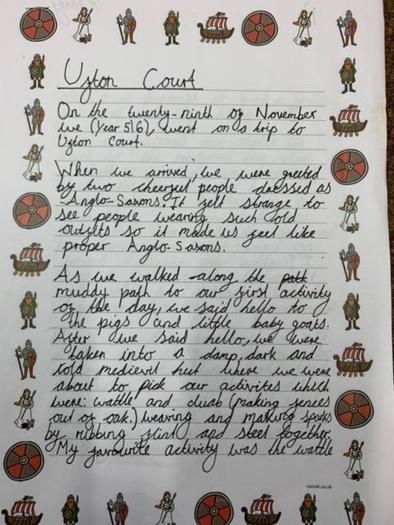 Ufton Court
On the twenty-ninth of November
we (Year 5/6), went on a trip to
Ufton Court.
When we arrived, we were greeted
by two cheerful people dressed as
Anglo-Saxons. It felt strange to
see people wearing such old
outfits so it made us feel like
proper Anglo-Saxons.
As we walked along the path
muddy path to our first activity
of the day, we said hello to
the pigs and little baby goats.
After we said hello, we were
taken into a damp, dark and
cold medievil hut where we were
about to pick our activites which
were: wattle and daub (making fences
out of oak,) weaving and making sparks
by rubbing flint and steel together.
My favourite activity was the wattle
twinkl.co.uk